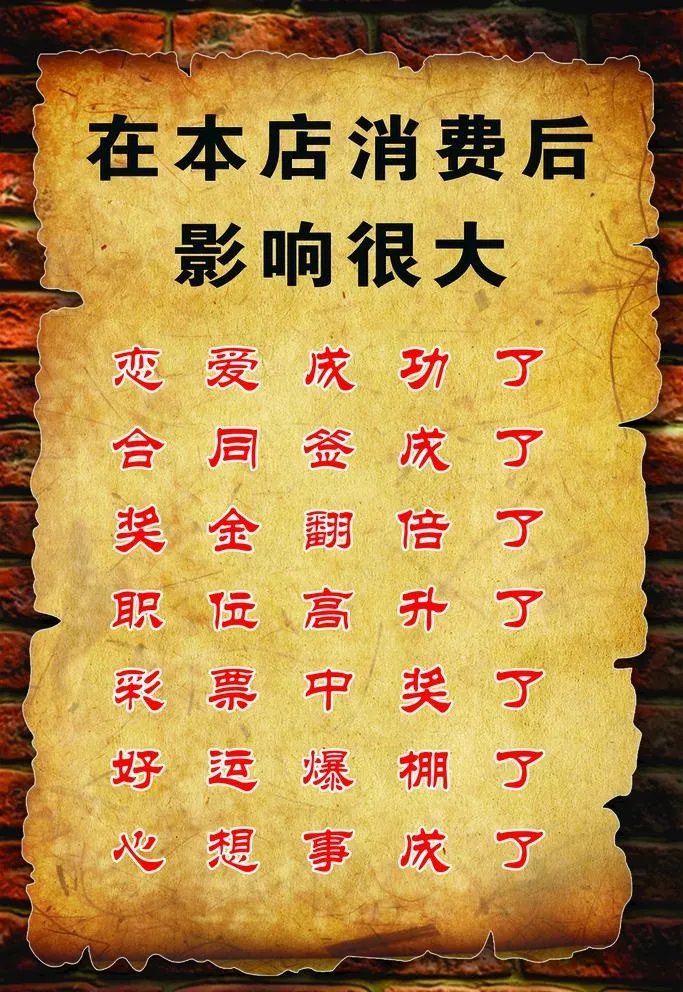 在本店消费后
影响很大
恋爱成功了
合同签成了
奖金翻倍了
职位高升了
彩票中奖了
好运爆棚了
心想事成了